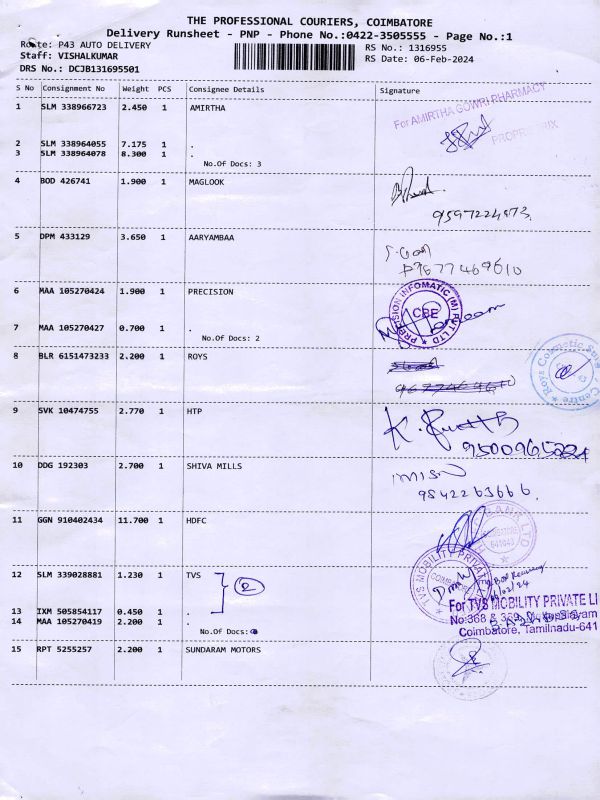 THE PROFESSIONAL COURIERS, COIMBATORE
Delivery Runsheet - PNP - Phone No.:0422-3505555 - Page No.:1
Route: P43 AUTO DELIVERY
RS No.: 1316955
Staff: VISHALKUMAR
RS Date: 06-Feb-2024
DRS No.: DCJB131695501
S No Consignment No Weight PCS Consignee Details Signature
1 SLM 338966723 2.450 1 AMIRTHA
For AMIRTHA GOWRI PHARMACY
2 SLM 338964055 7.175 1 .
3 SLM 338964078 8.300 1 .
No.Of Docs: 3
4 BOD 426741 1.900 1 MAGLOOK
9597224873.
5 DPM 433129 3.650 1 AARYAMBAA
6 MAA 105270424 1.900 1 PRECISION
PRECISION INFOMATIC (M) PVT LTD
CBE
7 MAA 105270427 0.700 1 .
No.Of Docs: 2
8 BLR 6151473233 2.200 1 ROYS
9 SVK 10474755 2.770 1 HTP
10 DDG 192303 2.700 1 SHIVA MILLS
9842263666.
11 GGN 910402434 11.700 1 HDFC
12 SLM 339028881 1.230 1 TVS
2
TVS MOBILITY PRIVATE
COIMBATORE
13 IXM 505854117 0.450 1 .
For TVS MOBILITY PRIVATE LI
14 MAA 105270419 2.200 1 .
No:368 & 369,
No.Of Docs:
Coimbatore, Tamilnadu-641
15 RPT 5255257 2.200 1 SUNDARAM MOTORS